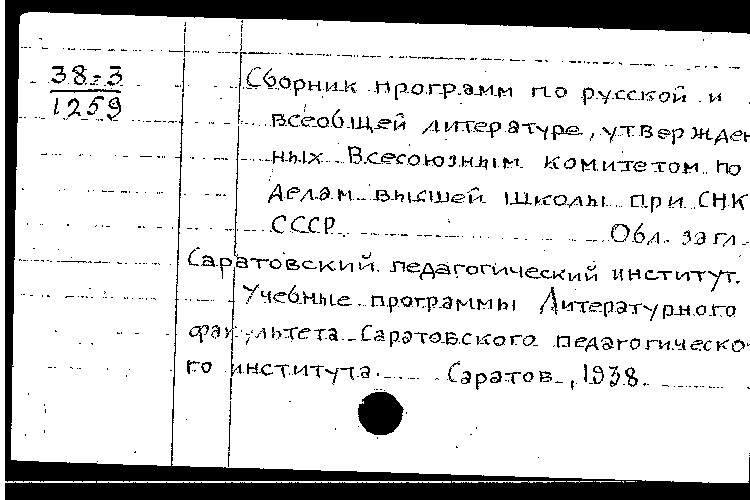 38-3
1259
Сборник программ по русской и
всеобщей литературе, утвержден
ных Всесоюзным комитетом по
делам высшей школы при СНК
СССР. Обл. загл.
Саратовский педагогический институт.
Учебные программы Литературного
факультета Саратовского педагогическо-
го института. Саратов, 1938.